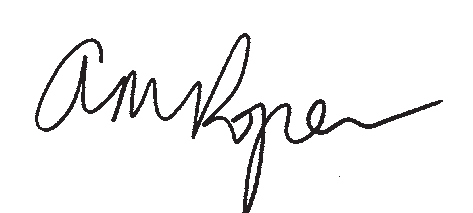 AM Roper